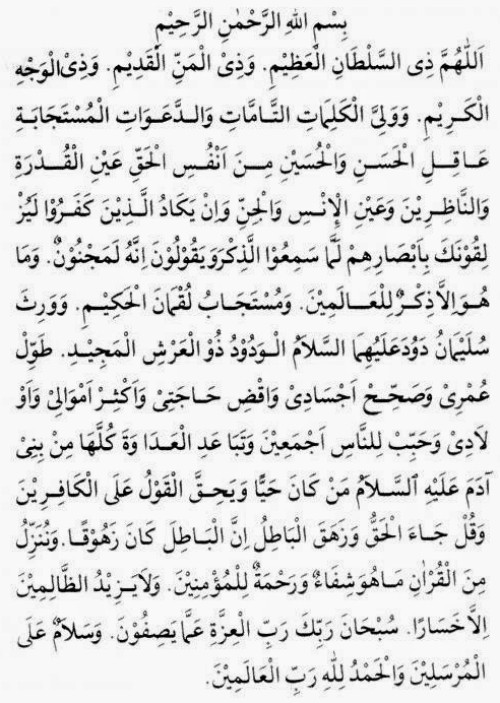 بِسْمِ اللهِ الرَّحْمٰنِ الرَّحِيْمِ
اَللّٰهُمَّ ذِى السَّلْطَانِ الْعَظِيْمِ. وَذِىْ الْمَنِّ الْقَدِيْمِ. وَذِىْ الْوَجْهِ
الْكَرِيْمِ. وَوَلِىَّ الْكَلِمَاتِ التَّامَّاتِ وَالدَّعَوَاتِ الْمُسْتَجَابَةِ
عَاقِلِ الْحَسَنِ وَالْحُسَيْنِ مِنَ اَنْفُسِ الْحَقِّ عَيْنِ الْقُدْرَةِ
وَالنَّاظِرِيْنَ وَعَيْنِ الْإِنْسِ وَالْجِنِّ وَاِنْ يَكَادُ الَّذِيْنَ كَفَرُوْا لَيُزْ
لِقُوْنَكَ بِاَبْصَارِهِمْ لَمَّا سَمِعُوْا الذِّكْرَ وَيَقُوْلُوْنَ اِنَّهُ لَمَجْنُوْنٌ. وَمَا
هُوَ اِلاَّ ذِكْرٌ لِلْعَالَمِيْنَ. وَمُسْتَجَابُ لُقْمَانَ الْحَكِيْمِ. وَوَرِثَ
سُلَيْمَانُ دَوُدَ عَلَيْهِمَا السَّلاَمُ الْوَدُوْدُ ذُوْ الْعَرْشِ الْمَجِيْدِ. طَوِّلْ
عُمْرِىْ وَصَحِّحْ اَجْسَادِىْ وَاقْضِ حَاجَتِىْ وَاَكْثِرْ اَمْوَالِىْ وَاَوْ
لَادِىْ وَحَبِّبْ لِلنَّاسِ اَجْمَعِيْنَ وَتَبَا عَدِ الْعَدَا وَةَ كُلَّهَا مِنْ بَنِىْ
آدَمَ عَلَيْهِ السَّلاَمُ مَنْ كَانَ حَيًّا وَيَحِقَّ الْقَوْلُ عَلَى الْكَافِرِيْنَ
وَقُلْ جَاءَ الْحَقُّ وَزَهَقَ الْبَاطِلُ اِنَّ الْبَاطِلَ كَانَ زَهُوْقًا. وَنُنَزِّلُ
مِنَ الْقُرْاٰنِ مَا هُوَ شِفَاءٌ وَرَحْمَةٌ لِلْمُؤْمِنِيْنَ. وَلاَ يَزِيْدُ الظَّالِمِيْنَ
اِلاَّ خَسَارًا. سُبْحَانَ رَبِّكَ رَبِّ الْعِزَّةِ عَمَّا يَصِفُوْنَ. وَسَلاَمٌ عَلَى
الْمُرْسَلِيْنَ وَالْحَمْدُ لِلّٰهِ رَبِّ الْعَالَمِيْنَ.